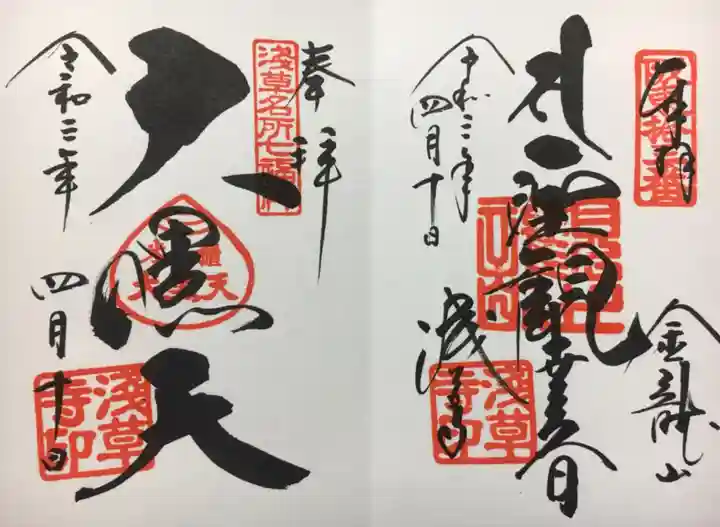 奉拝
浅草名所七福神
大黒天
令和三年
四月十日
浅草寺印
奉拝
金龍山
聖観世音
令和三年
四月十日
浅草寺
浅草寺印